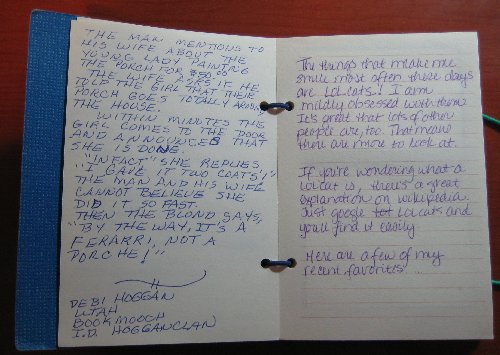 THE MAN MENTIONS TO
HIS WIFE ABOUT THE
YOUNG LADY PAINTING
THE PORCH FOR $50.00
THE WIFE ASKS IF HE
TOLD THE GIRL THAT THEIR
PORCH GOES TOTALLY AROUND
THE HOUSE.
WITHIN MINUTES THE
GIRL COMES TO THE DOOR
AND ANNOUNCED THAT
SHE IS DONE.
"INFACT" SHE REPLIES
"I GAVE IT TWO COATS!"
THE MAN AND HIS WIFE
CANNOT BELIEVE SHE
DID IT SO FAST.
THEN THE BLOND SAYS,
"BY THE WAY, IT'S A
FERARRI, NOT A
PORCHE!"
DEBI HOGGAN
UTAH
BOOKMOOCH
I.D. HOGGANCLAN
The things that make me
smile most often these days
are LOLcats! I am
mildly obsessed with them.
It's great that lots of other
people are, too. That means
there are more to look at.
If you're wondering what a
LOLcat is, there's a great
explanation on wikipedia.
Just google LOLcats and
you'll find it easily.
Here are a few of my
recent favorites...